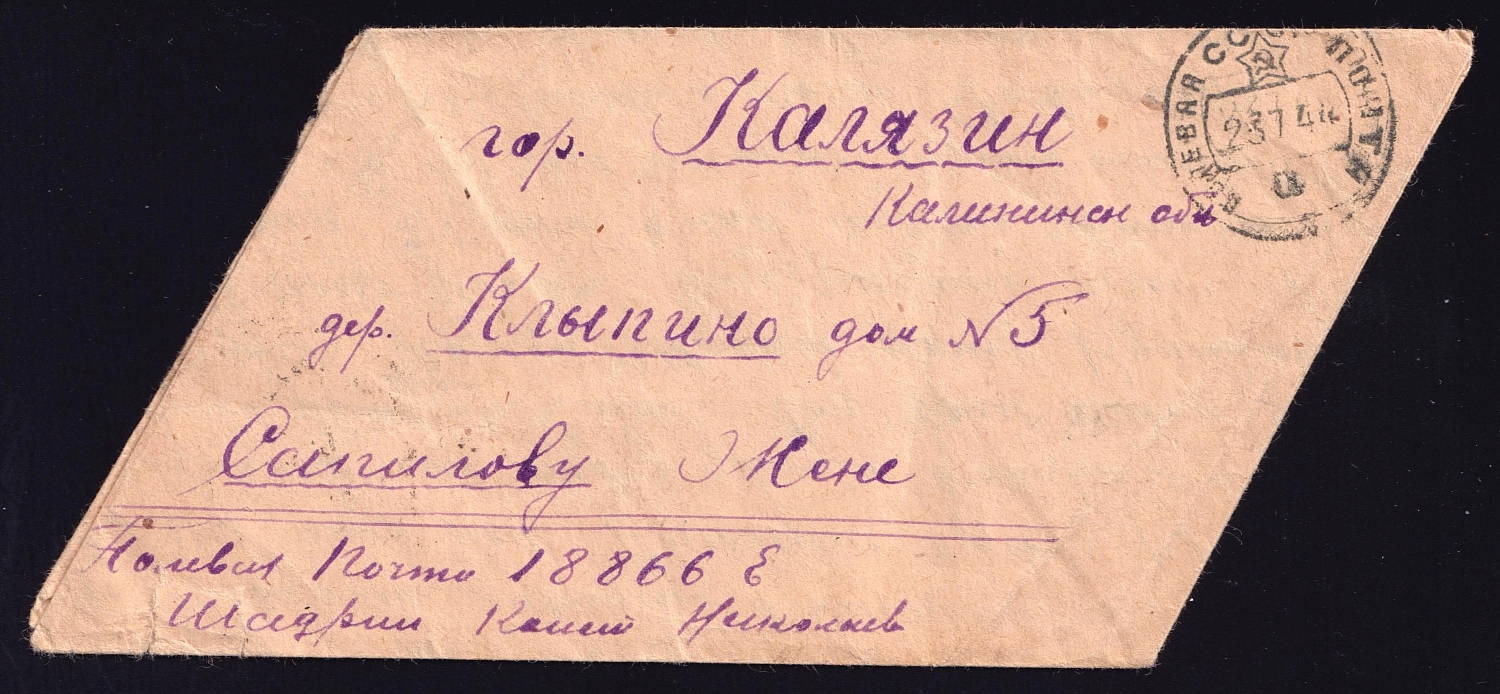 гор. Калязин
Калининск обл
дер. Клыпино дом № 5
Сапилову Жене
Полевая Почта 18866 Е
Шадрин Николаев
ПОЛЕВАЯ ПОЧТА
СССР
23 1 44